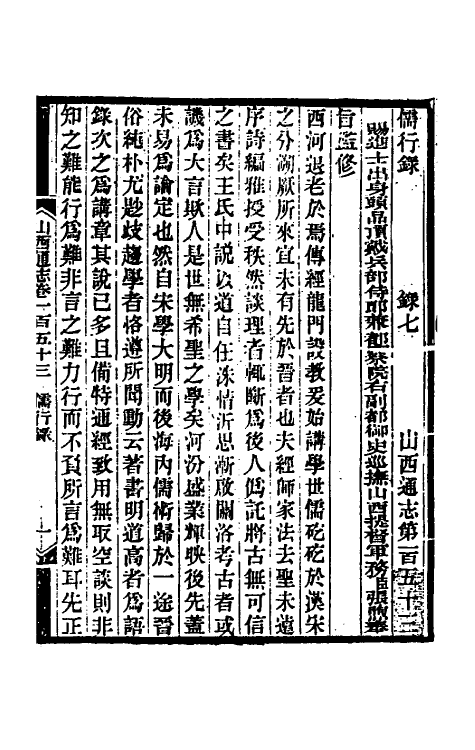 儒行錄　錄七　山西通志第一百五十三
賜進士出身頭品頂戴兵部侍郎兼都察院右副都御史巡撫山西提督軍務臣張煦奉
旨監修
西河退老於焉傳經龍門設教爰始講學世儒矻矻於漢宋
之分溯厥所來宜未有先於晉者也夫經師家法去聖未遠
序詩編雅授受秩然談理者輒斷爲後人僞託將古無可信
之書矣王氏中說以道自任洙情沂思漸啟關洛考古者或
譏爲大言欺人是世無希聖之學矣河汾盛業輝映後先蓋
未易爲論定也然自宋學大明而後海內儒術歸於一途晉
俗純朴尤尠歧趨學者恪遵所聞動云著書明道高者爲語
錄次之爲講章其說已多且備特通經致用無取空談則非
知之難能行爲難非言之難力行而不負所言爲難耳先正
山西通志卷一百五十三　儒行錄　一